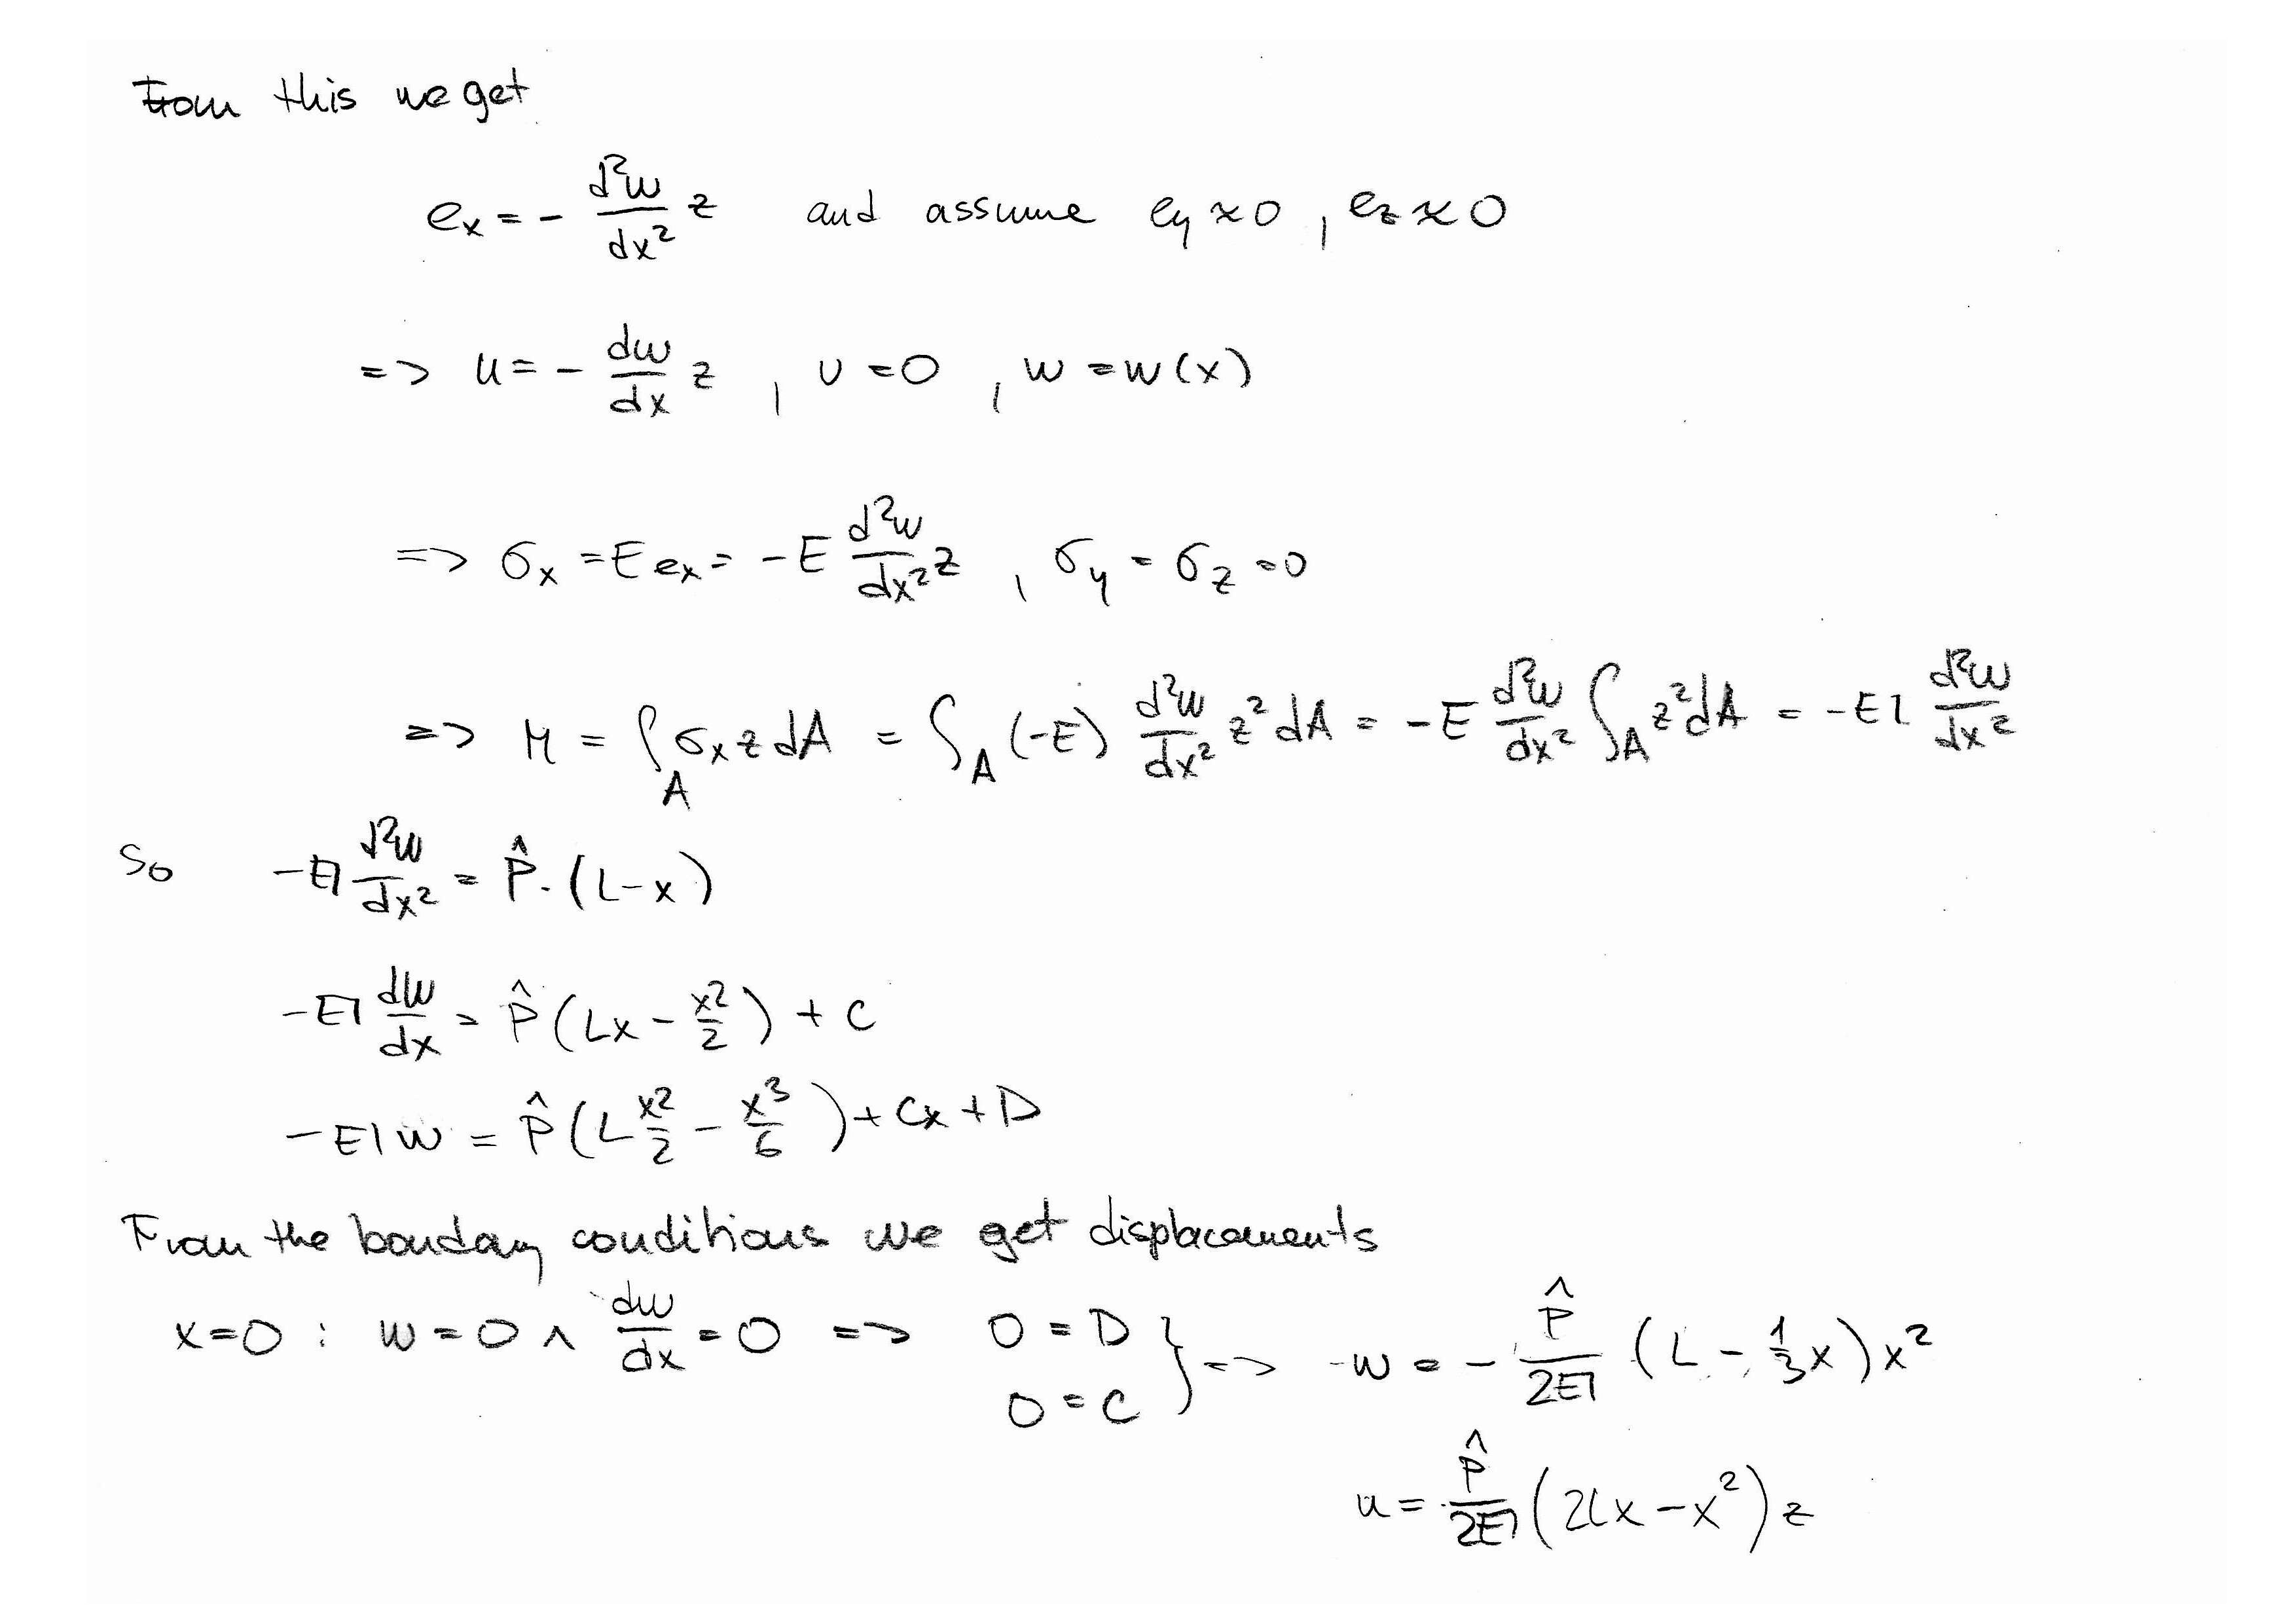 From this we get
e_x = - d²w/dx² z and assume e_y ≈ 0 , e_z ≈ 0
=> u = - dw/dx z , v = 0 , w = w(x)
=> σ_x = E e_x = - E d²w/dx² z , σ_y = σ_z = 0
=> M = ∫_A σ_x z dA = ∫_A (-E) d²w/dx² z² dA = - E d²w/dx² ∫_A z² dA = - EI d²w/dx²
So - EI d²w/dx² = P̂ · (L - x)
- EI dw/dx = P̂ (Lx - x²/2) + C
- EI w = P̂ (L x²/2 - x³/6) + Cx + D
From the boundary conditions we get displacements
x = 0 : w = 0 ∧ dw/dx = 0 => 0 = D
0 = C } => w = - P̂/2EI (L - 1/3 x) x²
u = P̂/2EI (2Lx - x²) z